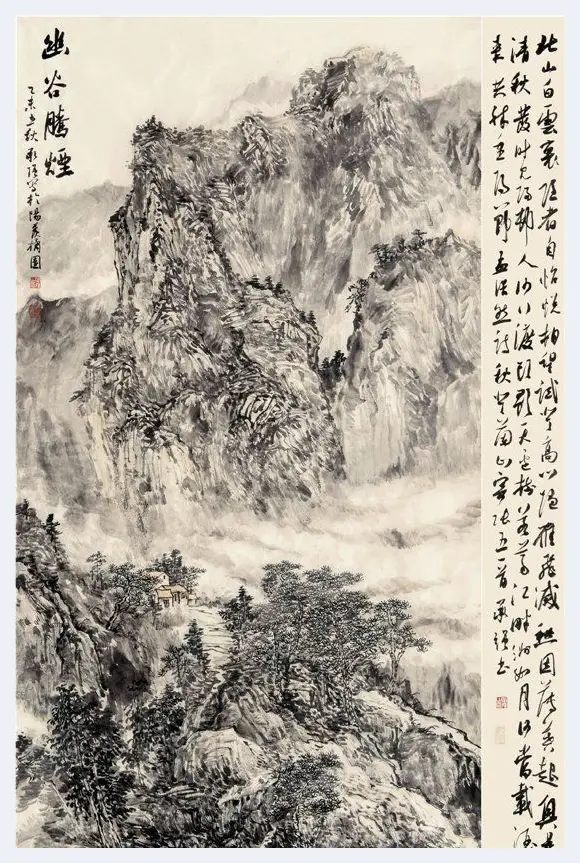 北山白雲裏隱者自怡悅相望試登高心隨雁飛滅愁因薄暮起興是
清秋發時見歸村人沙行渡頭歇天邊樹若薺江畔洲如月何當載酒
來共醉重陽節孟浩然詩秋登蘭山寄張五一首書
幽谷騰煙
乙未秋寫於湯泉園